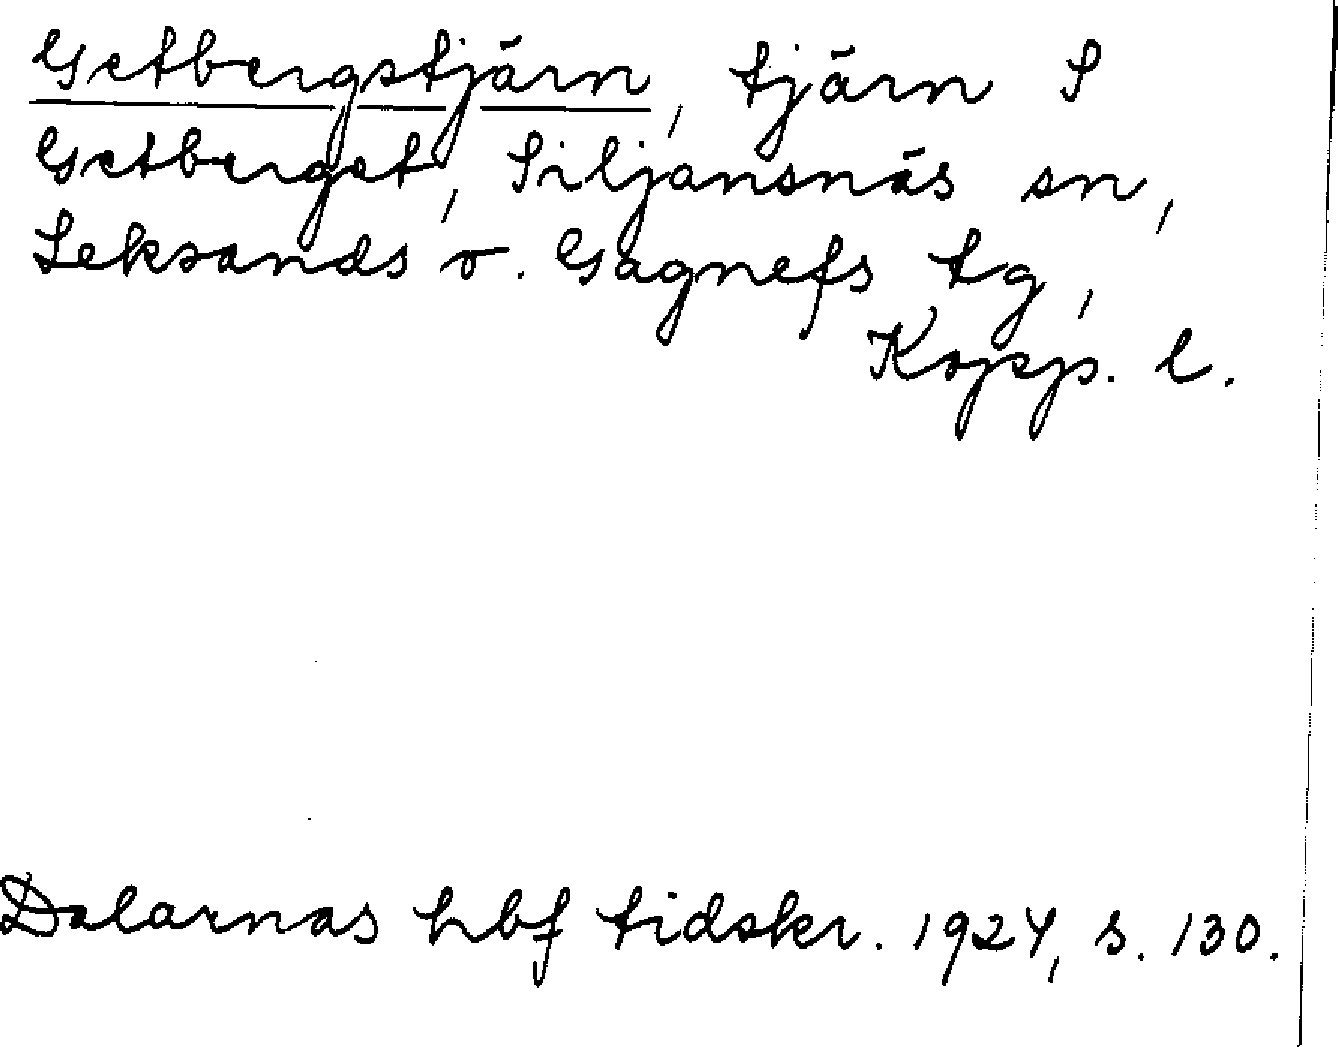 Getbergstjärn, tjärn S
Getberget, Siljansnäs sn,
Leksands o. Gagnefs tg,
Kopp. l.
Dalarnas hbf tidskr. 1924, s. 130.